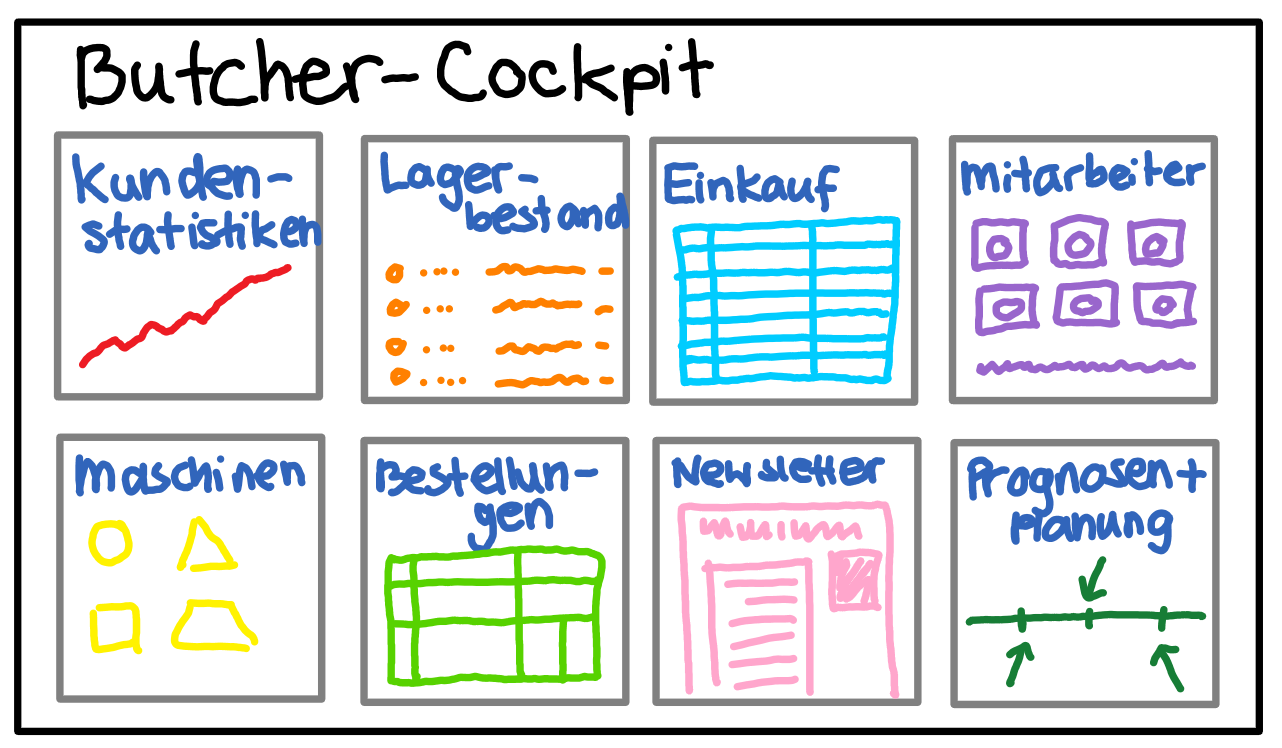 Butcher-Cockpit
Kunden-
statistiken
Lager-
bestand
Einkauf
Mitarbeiter
Maschinen
Bestellun-
gen
Newsletter
Prognosen +
Planung